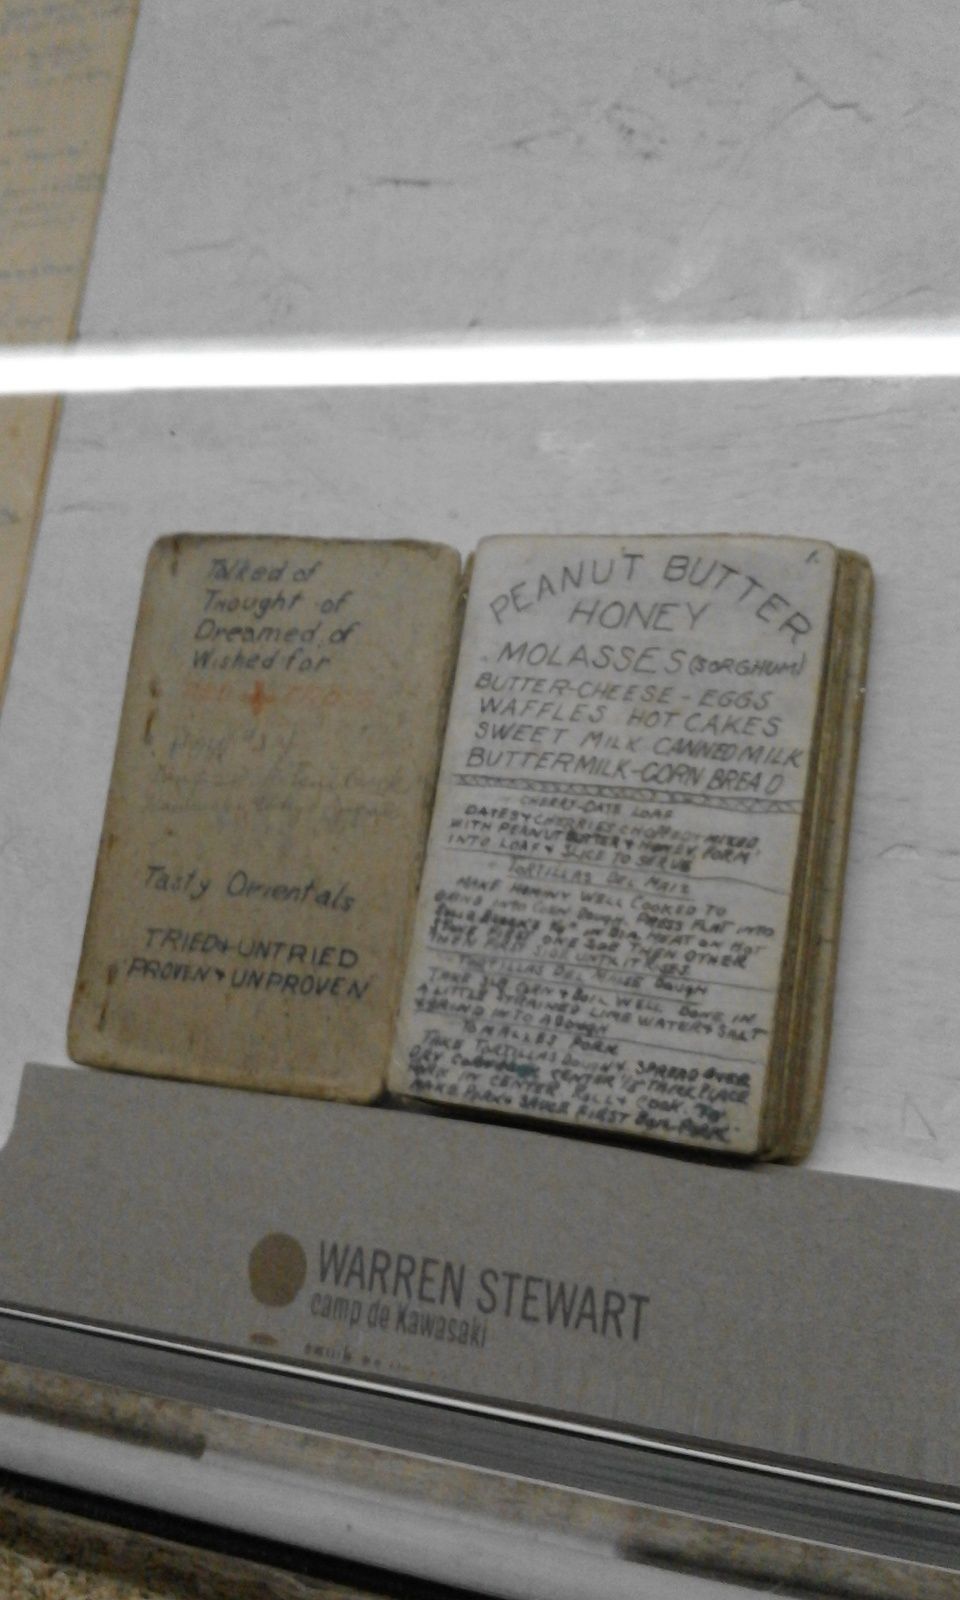 Talked of
Thought of
Dreamed of
Wished for
Tasty Orientals
TRIED & UNTRIED
PROVEN & UNPROVEN
1.
PEANUT BUTTER
HONEY
MOLASSES (SORGHUM)
BUTTER-CHEESE - EGGS
WAFFLES HOT CAKES
SWEET MILK CANNED MILK
BUTTERMILK-CORN BREAD
CHERRY-DATE LOAF
DATES & CHERRIES CHOPPED & MIXED
WITH PEANUT BUTTER & HONEY FORM
INTO LOAF & SLICE TO SERVE
TORTILLAS DEL MAIZ
MAKE HOMINY WELL COOKED TO
GRIND INTO CORN DOUGH. PRESS FLAT INTO
IN DIA. HEAT ON HOT
FIRST ONE SIDE THEN OTHER
THEN FIRST SIDE UNTIL IT
TORTILLAS DEL DOUGH
TAKE CORN & BOIL WELL DONE IN
A LITTLE STRAINED LIME WATER & SALT
& GRIND INTO A DOUGH
TOMALLES PORK
TAKE TORTILLAS DOUGH & SPREAD OVER
DRY CENTER THICK PLACE
PORK IN CENTER ROLL & COOK. TO
MAKE PORK & SAUCE FIRST BOIL PORK
WARREN STEWART
camp de Kawasaki